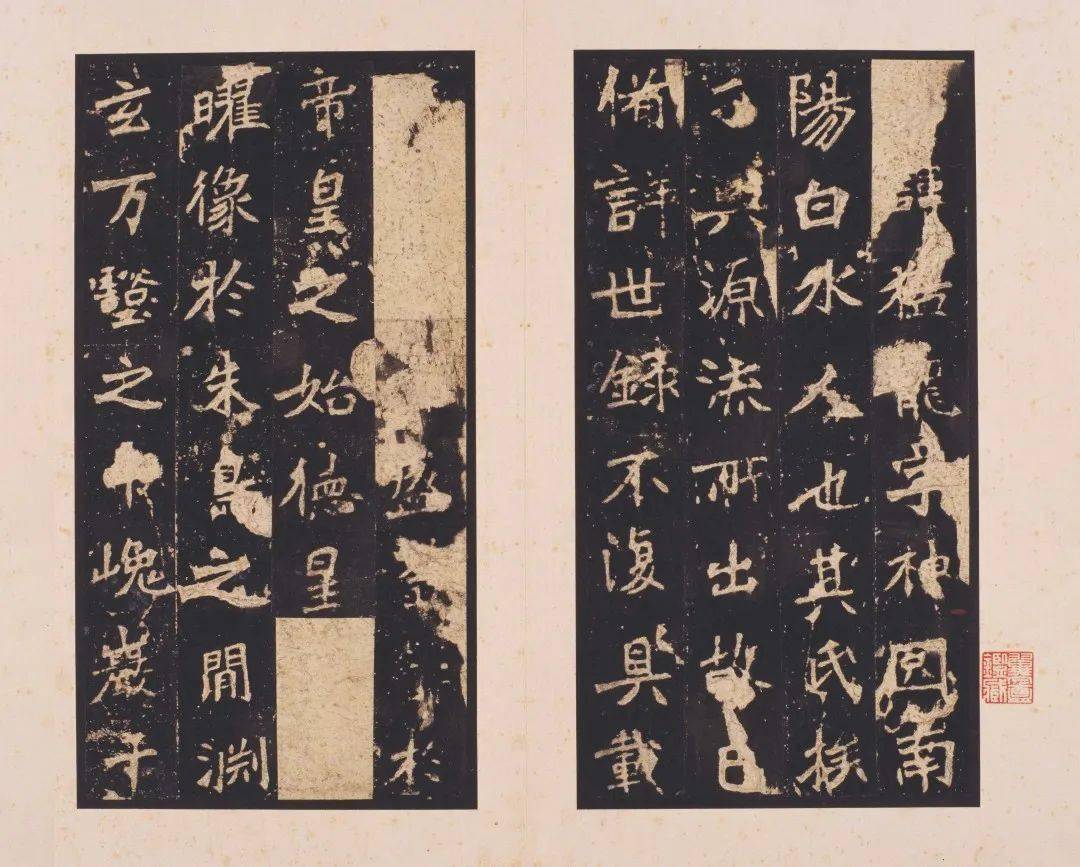 諱猛龍字神冏南
陽白水人也其氏族
源流所出故已
備詳世録不復具載
盛於
帝皇之始德星
曜像於朱鳥之間淵
玄万壑之中巉巖千